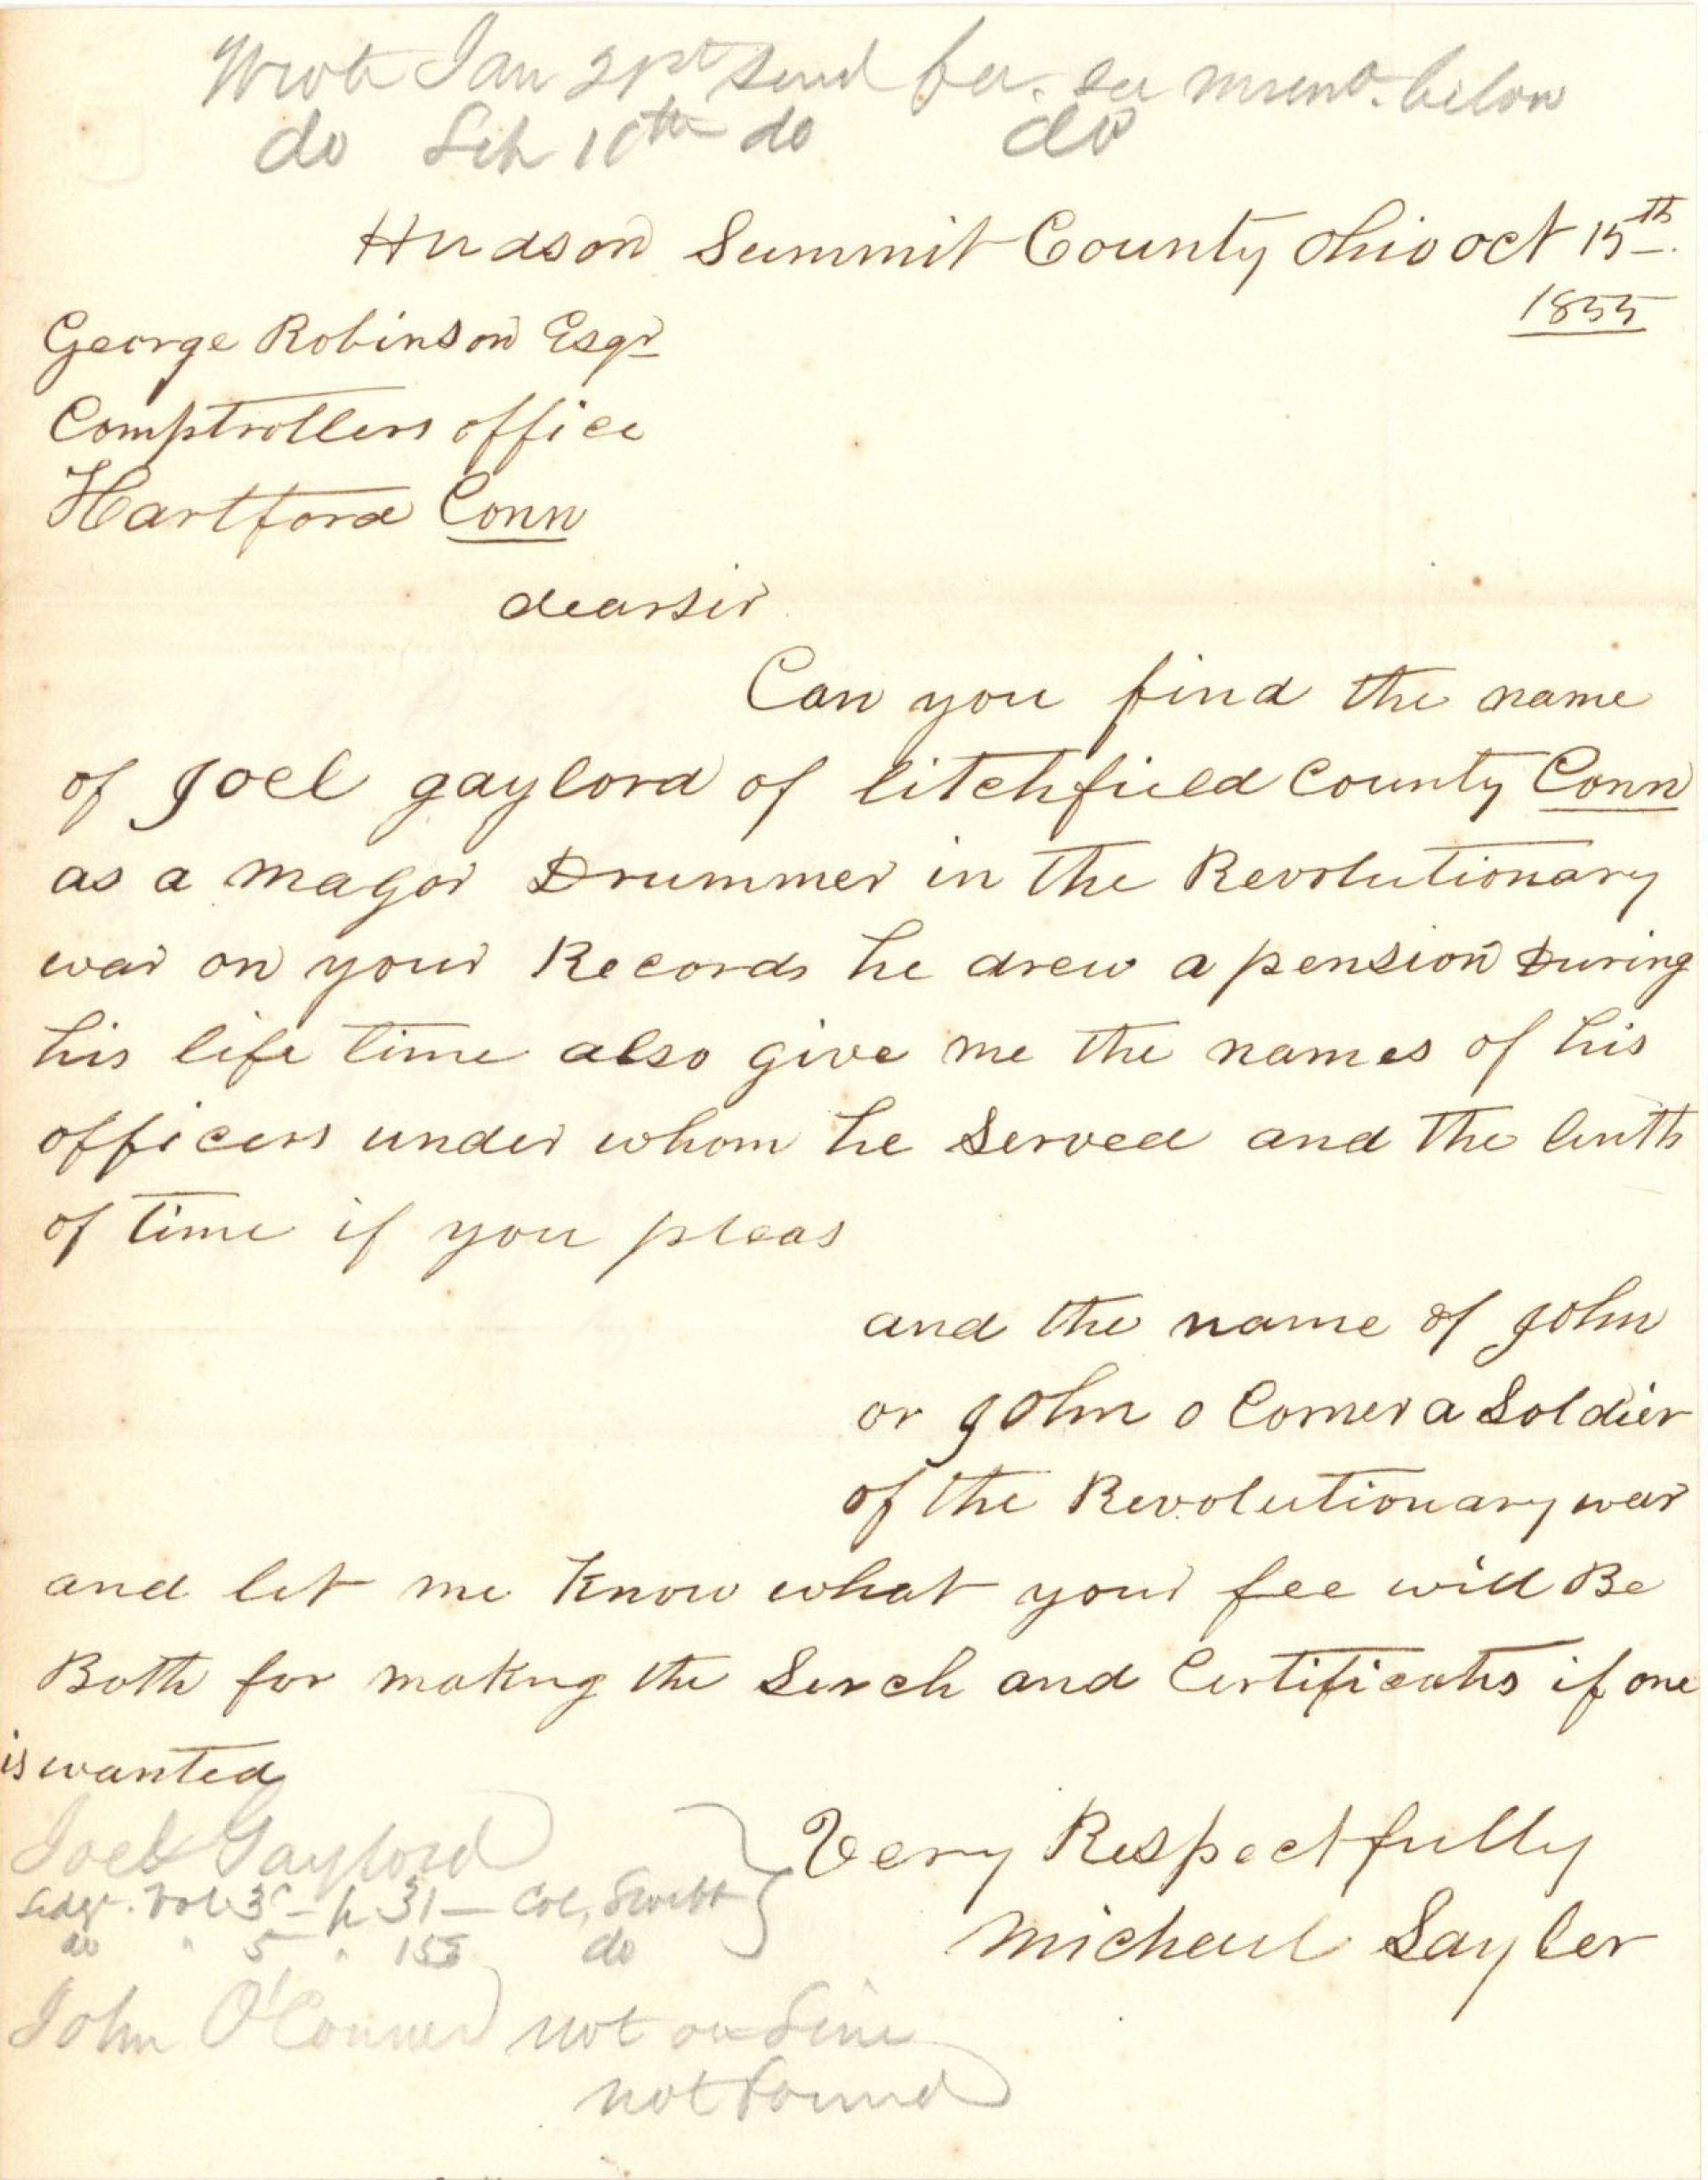 Wrote Jan 21st send fee. see mem. below
do Feb 10th do do
Hudson Summit County Ohio oct 15th.
1855
George Robinson Esqr
Comptrollers office
Hartford Conn
dearsir
Can you find the name
of Joel gaylord of litchfield County Conn
as a magor Drummer in the Revolutionary
war on your Records he drew a pension During
his life time also give me the names of his
officers under whom he Served and the linth
of time if you pleas
and the name of John
or John o Comer a Soldier
of the Revolutionary war
and let me Know what your fee will Be
Both for making the Serch and Certificates if one
is wanted
Very Respectfully
Michael Sayler
Joel Gaylord
Ledgr. Vol 3 - p 31 - Col. Swift
do " 5 " 155 do
John O'Conner not on
not found